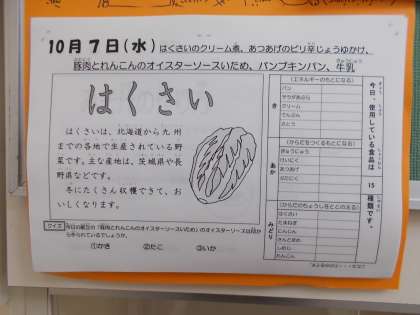 10月7日(水) はくさいのクリーム煮、あつあげのピリ辛じょうゆかけ、
豚肉とれんこんのオイスターソースいため、パンプキンパン、牛乳
はくさい
はくさいは、北海道から九州
までの各地で生産されている野
菜です。主な産地は、茨城県や長
野県などです。
冬にたくさん収穫できて、お
いしくなります。
クイズ 今日の献立の「豚肉とれんこんのオイスターソースいため」のオイスターソースは何か
ら作られているでしょうか。
①かき ②たこ ③いか
今日、使用している食品は 15 種類です。
き
(エネルギーのもとになる)
パン
サラダあぶら
クリーム
でんぷん
さとう
あか
(からだをつくるもとになる)
ぎゅうにゅう
けいにく
あつあげ
ぶたにく
みどり
(からだのちょうしをととのえる)
はくさい
たまねぎ
にんじん
さんどまめ
しめじ
れんこん